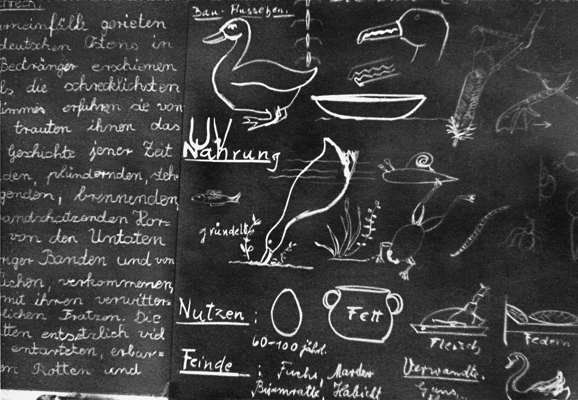 meinfällt gerieten
deutschen Ostens in
Bedränger erschienen
ls die schrecklichsten
immer erfuhren sie von
trauten ihnen das
Geschichte jener Zeit
den, plündernden,
genden, brennenden,
andschatzenden Hor-
von den Untaten
nger Banden und von
lichen, verkommenen
mit ihren verwitter-
lichen Fratzen. Die
tten entsetzlich viel
entarteten, erbar-
n Rotten und
Bau-Aussehen.
Nahrung
gründelt
Nutzen:
60-100 jährl.
Fett
Fleisch
Federn
Feinde: Fuchs, Marder
Bisamratte, Habicht
Verwandte:
Gans,